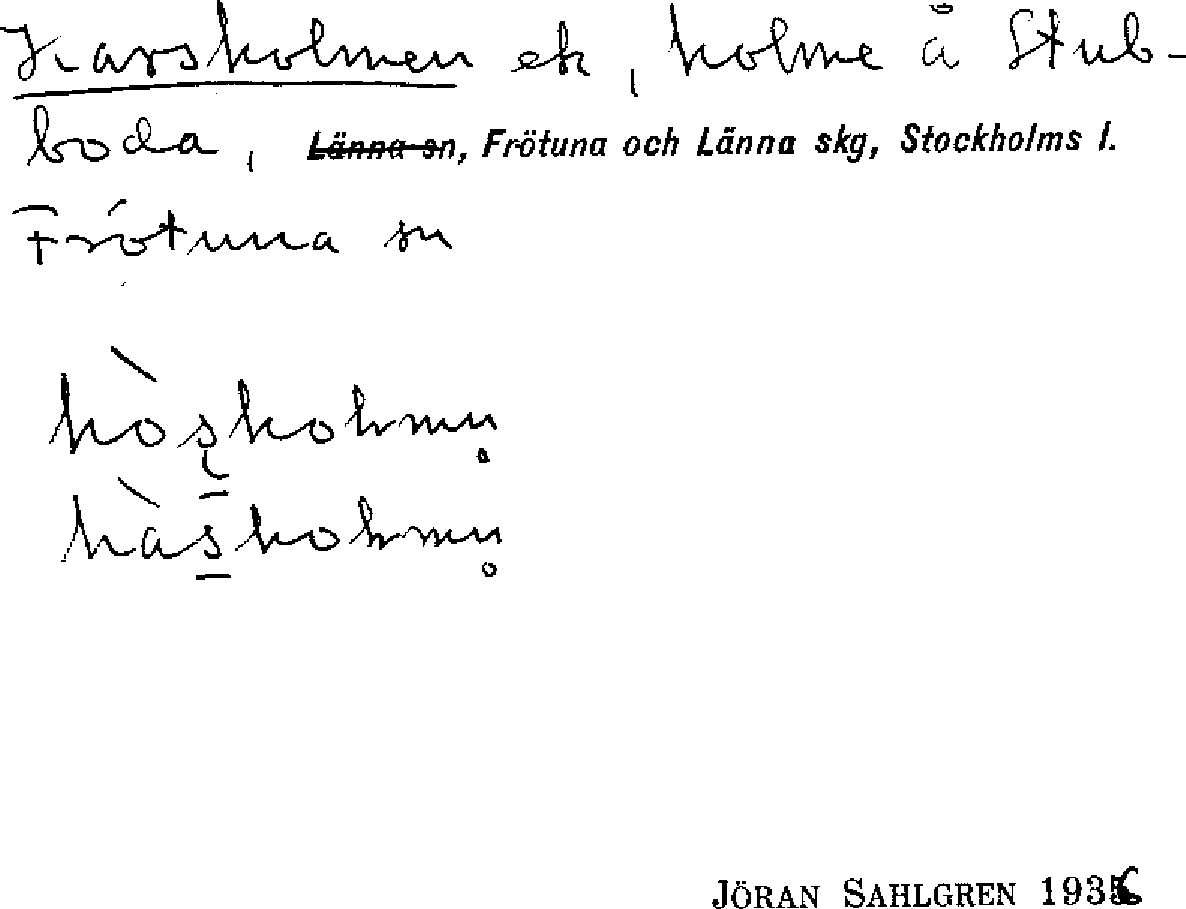 Karsholmen ek, holme å Stub-
boda, Länna sn, Frötuna och Länna skg, Stockholms l.
Frötuna sn
JÖRAN SAHLGREN 1936